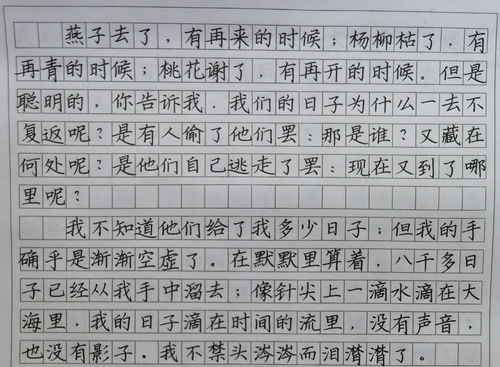 燕子去了，有再来的时候；杨柳枯了，有
再青的时候；桃花谢了，有再开的时候。但是
聪明的，你告诉我，我们的日子为什么一去不
复返呢？是有人偷了他们罢：那是谁？又藏在
何处呢？是他们自己逃走了罢：现在又到了哪
里呢？
我不知道他们给了我多少日子；但我的手
确乎是渐渐空虚了。在默默里算着，八千多日
子已经从我手中溜去；像针尖上一滴水滴在大
海里，我的日子滴在时间的流里，没有声音，
也没有影子。我不禁头涔涔而泪潸潸了。